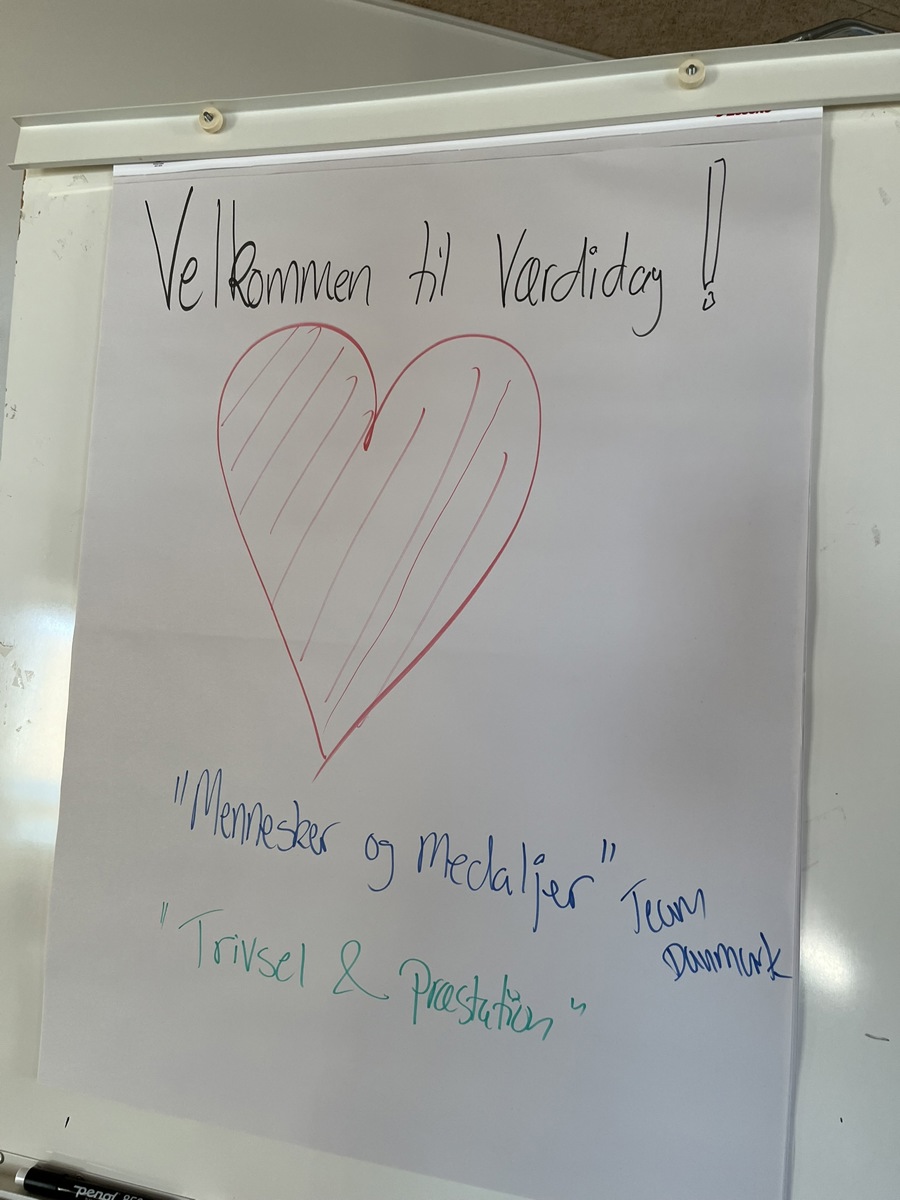 Velkommen til Værdidag!
"Mennesker og Medaljer" Team
Danmark
"Trivsel & Præstation"
penol